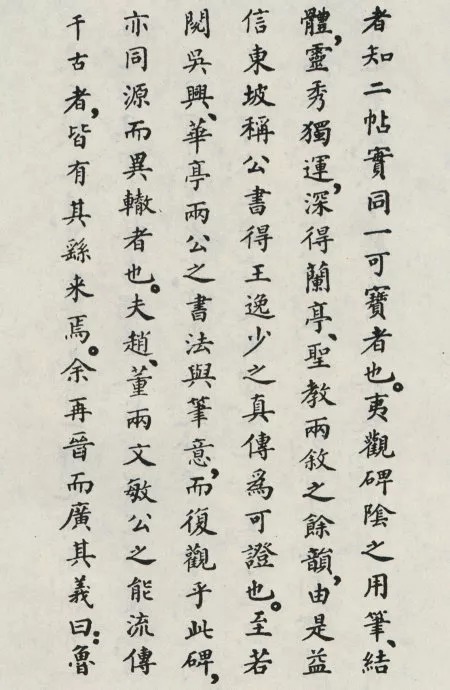 者知二帖實同一可寶者也。夷觀碑陰之用筆、結
體，靈秀獨運，深得蘭亭、聖教兩敘之餘韻，由是益
信東坡稱公書得王逸少之真傳為可證也。至若
閱吳興、華亭兩公之書法與筆意，而復觀乎此碑，
亦同源而異轍者也。夫趙、董兩文敏公之能流傳
千古者，皆有其繇来焉。余再晉而廣其義曰：魯